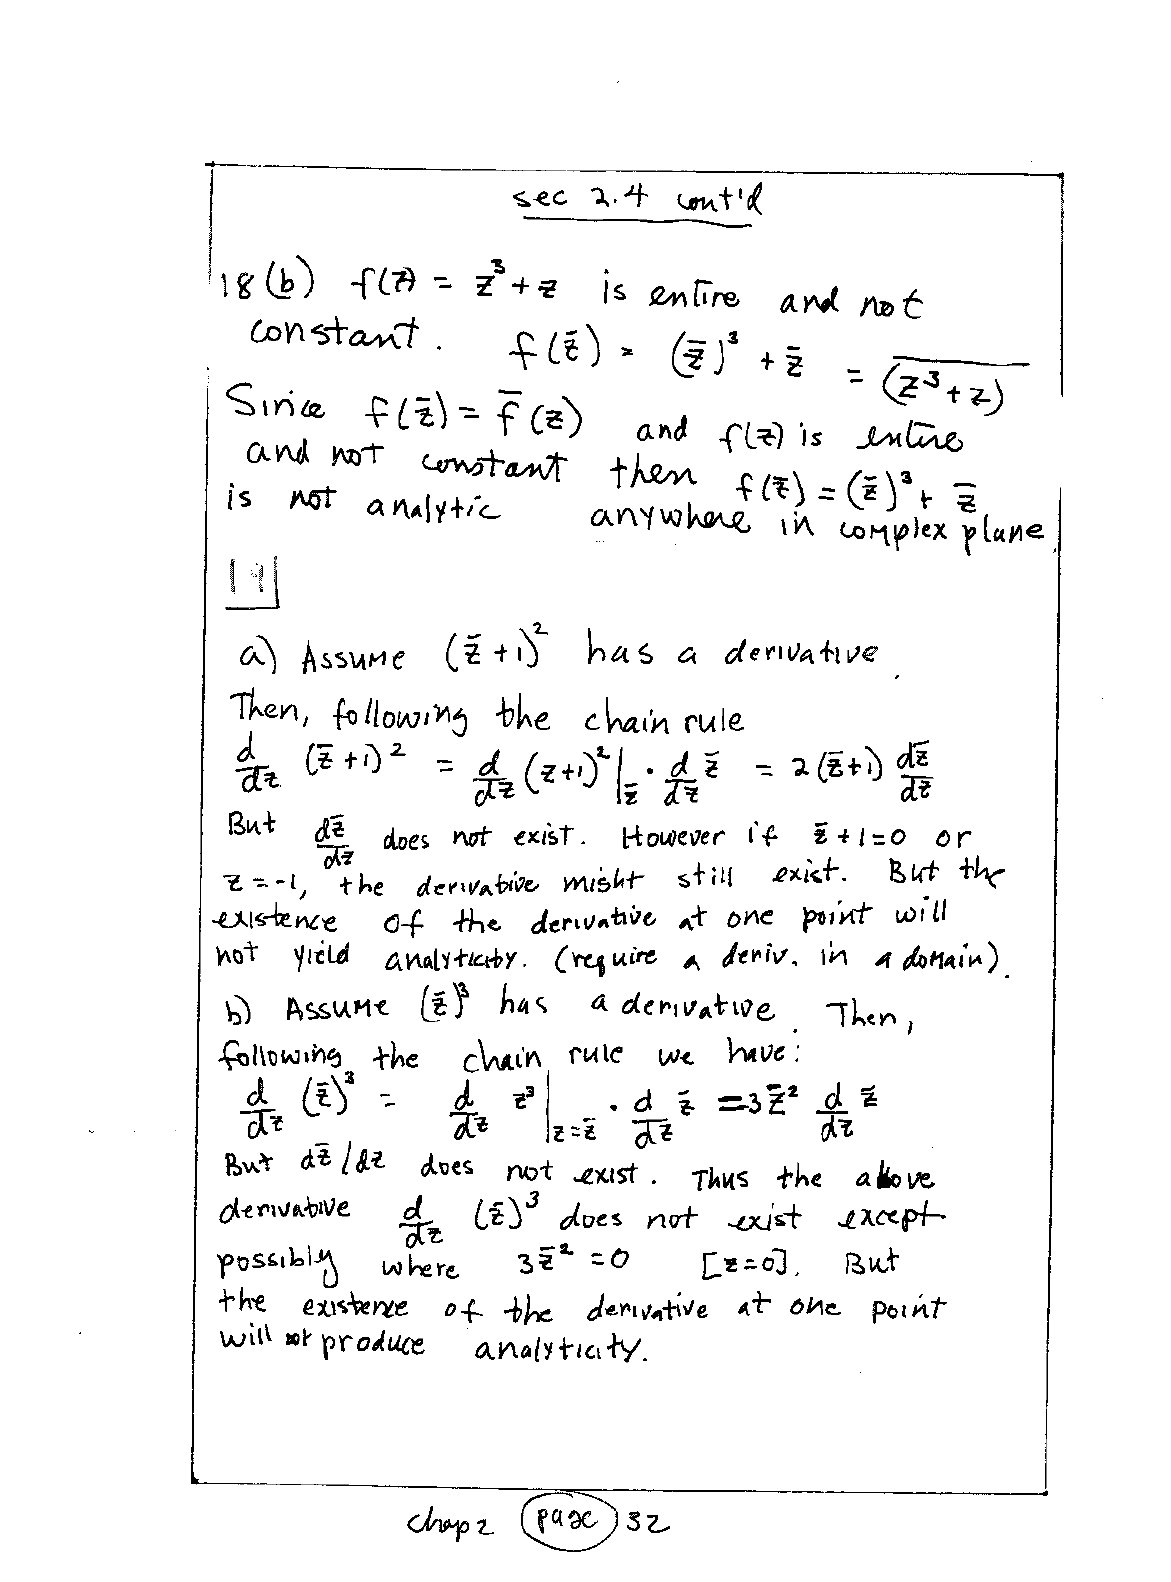 sec 2.4 cont'd
18(b) f(z) = z³+z is entire and not
constant. f(z̄) = (z̄)³ + z̄ = \overline{(z³+z)}
Since f(z̄) = f̄(z) and f(z) is entire
and not constant then f(z̄) = (z̄)³ + z̄
is not analytic anywhere in complex plane.
19
a) Assume (z̄+1)² has a derivative.
Then, following the chain rule
d/dz (z̄+1)² = d/dz (z+1)²|_z̄ · d/dz z̄ = 2(z̄+1) dz̄/dz
But dz̄/dz does not exist. However if z̄+1=0 or
z=-1, the derivative might still exist. But the
existence of the derivative at one point will
not yield analyticity. (require a deriv. in a domain).
b) Assume (z̄)³ has a derivative. Then,
following the chain rule we have:
d/dz (z̄)³ = d/dz z³|_{z=z̄} · d/dz z̄ = 3z̄² d/dz z̄
But dz̄/dz does not exist. Thus the above
derivative d/dz (z̄)³ does not exist except
possibly where 3z̄²=0 [z=0]. But
the existence of the derivative at one point
will not produce analyticity.
chap 2 page 32